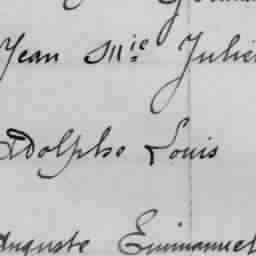 Jean Mie Julie
Adolphe Louis
Auguste Emmanuel